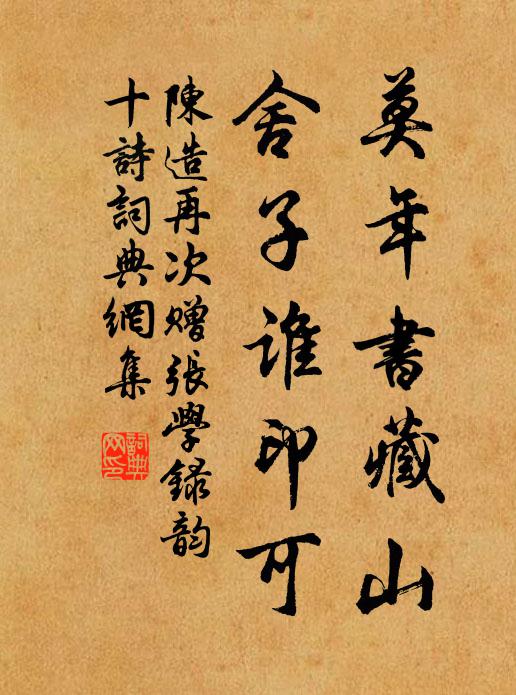 莫年書藏山
舍子誰印可
陳造再次贈張學錄韵
十詩詞典網集
詞典
网印